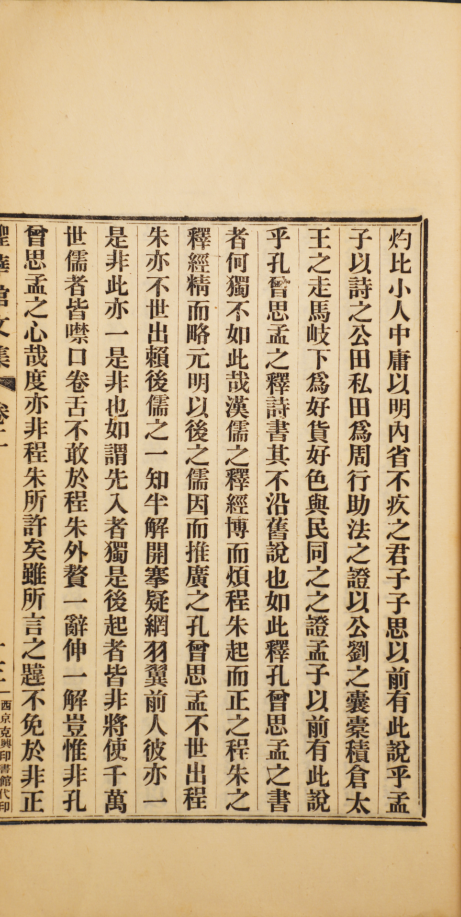 灼比小人中庸以明內省不疚之君子子思以前有此說乎孟
子以詩之公田私田爲周行助法之證以公劉之囊橐積倉太
王之走馬岐下爲好貨好色與民同之之證孟子以前有此說
乎孔曾思孟之釋詩書其不沿舊說也如此釋孔曾思孟之書
者何獨不如此哉漢儒之釋經博而煩程朱起而正之程朱之
釋經精而略元明以後之儒因而推廣之孔曾思孟不世出程
朱亦不世出賴後儒之一知半解開搴疑網羽翼前人彼亦一
是非此亦一是非也如謂先入者獨是後起者皆非將使千萬
世儒者皆噤口卷舌不敢於程朱外贅一辭伸一解豈惟非孔
曾思孟之心哉度亦非程朱所許矣雖所言之韙不免於非正
館文集 卷二
西京克興印書館代印